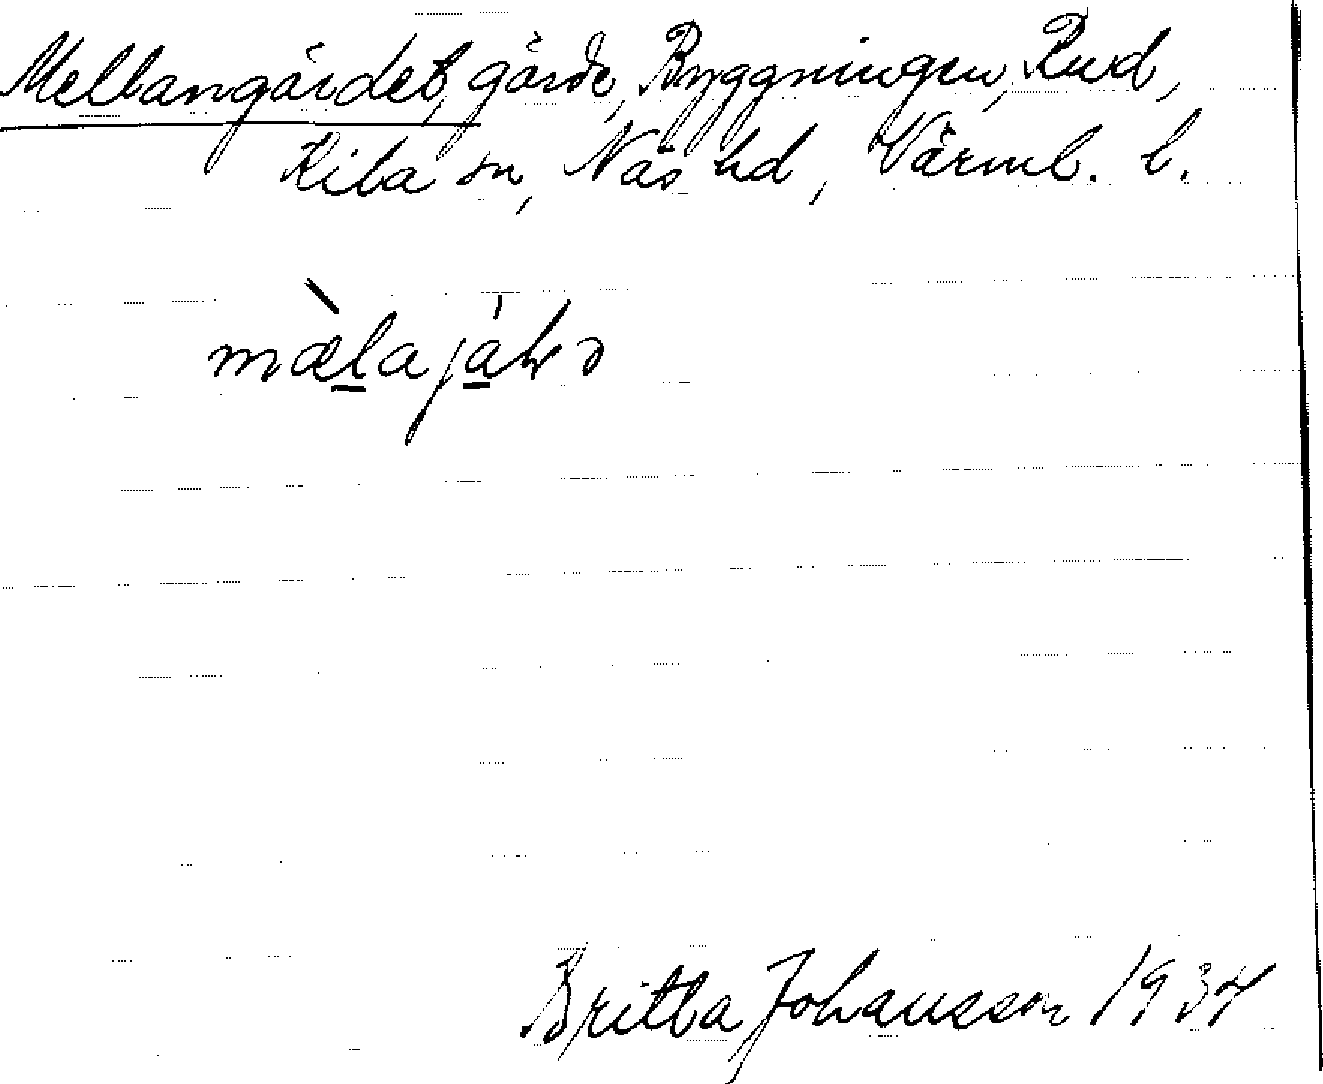 Mellangärdet, gärde, Byggningen, Rud,
Kila sn, Näs hd, Värml. l.
Britta Johansson 1934